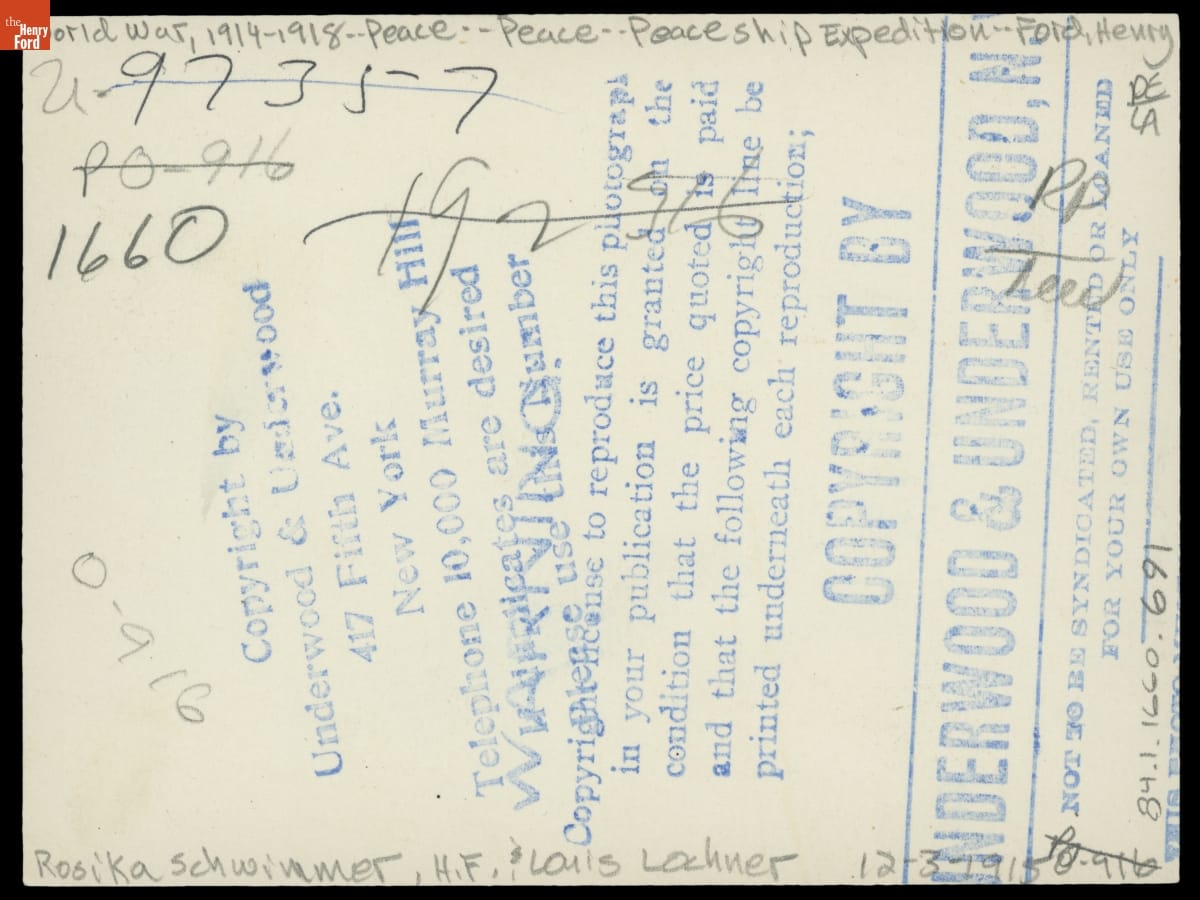 the
Henry
Ford
orld War, 1914-1918--Peace--Peace--Peaceship Expedition--Ford, Henry
U-97357
PO-916
1660
PE
LA
Copyright by
Underwood & Underwood
417 Fifth Ave.
New York
Telephone 10,000 Murray Hill
If duplicates are desired
use this Number
WARNING.
Copyright license to reproduce this photograph
in your publication is granted on the
condition that the price quoted is paid
and that the following copyright line be
printed underneath each reproduction;
COPYRIGHT BY
UNDERWOOD & UNDERWOOD, N.
NOT TO BE SYNDICATED, RENTED OR LOANED
FOR YOUR OWN USE ONLY
84.1.1660.691
Rosika Schwimmer, H.F., & Louis Lochner
12-3-1915